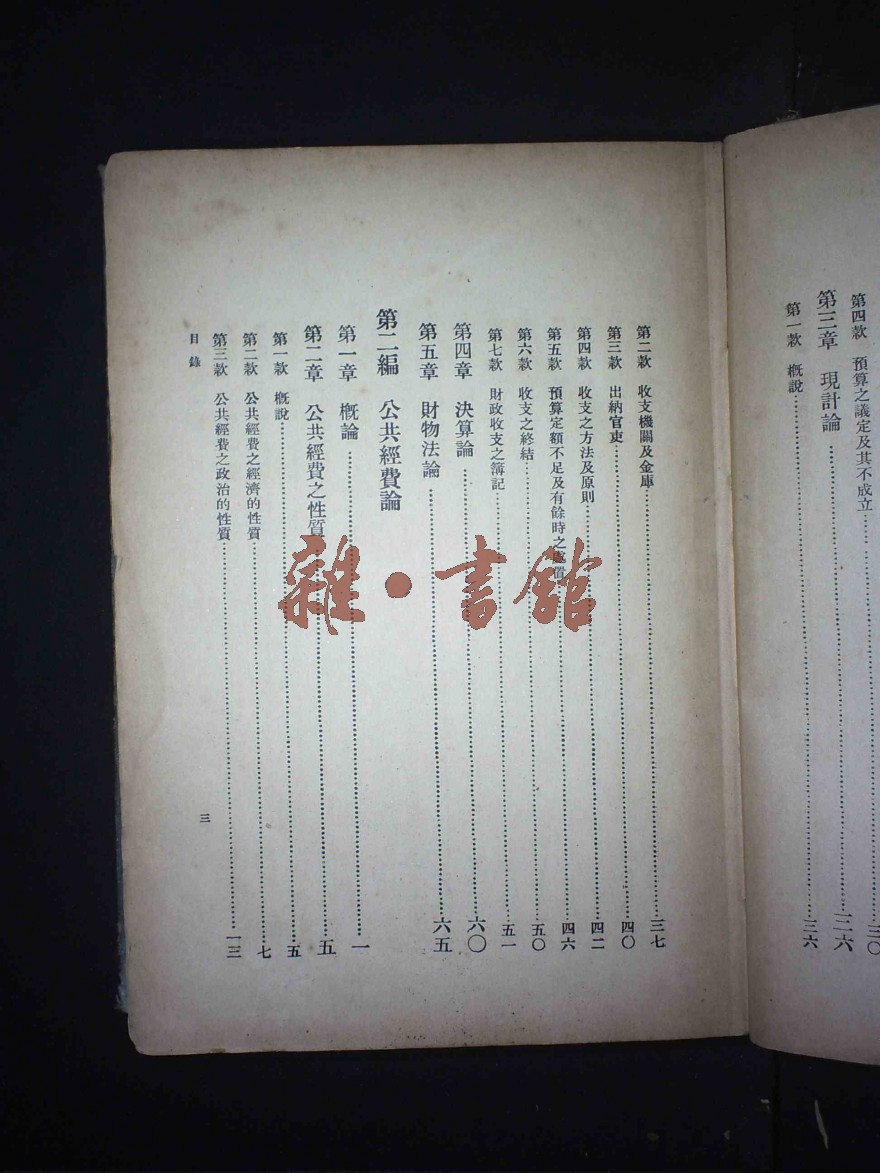 第四款 預算之議定及其不成立……三〇
第三章 現計論……三六
第一款 概說……三六
第二款 收支機關及金庫……三七
第三款 出納官吏……四〇
第四款 收支之方法及原則……四二
第五款 預算定額不足及有餘時之處置……四六
第六款 收支之終結……五〇
第七款 財政收支之簿記……五一
第四章 決算論……六〇
第五章 財物法論……六五
第二編 公共經費論
第一章 概論……一
第二章 公共經費之性質……五
第一款 概說……五
第二款 公共經費之經濟的性質……七
第三款 公共經費之政治的性質……一三
目錄
三
雜·書館